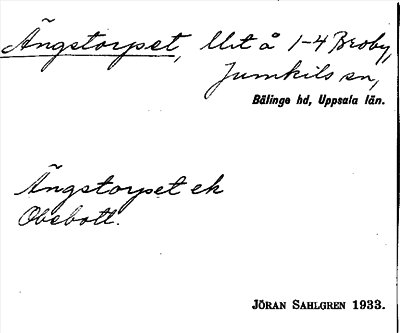 Ängstorpet, llit å 1-4 Broby,
Jumkils sn,
Bälinge hd, Uppsala län.
Ängstorpet ek
Obebott.
JÖRAN SAHLGREN 1933.